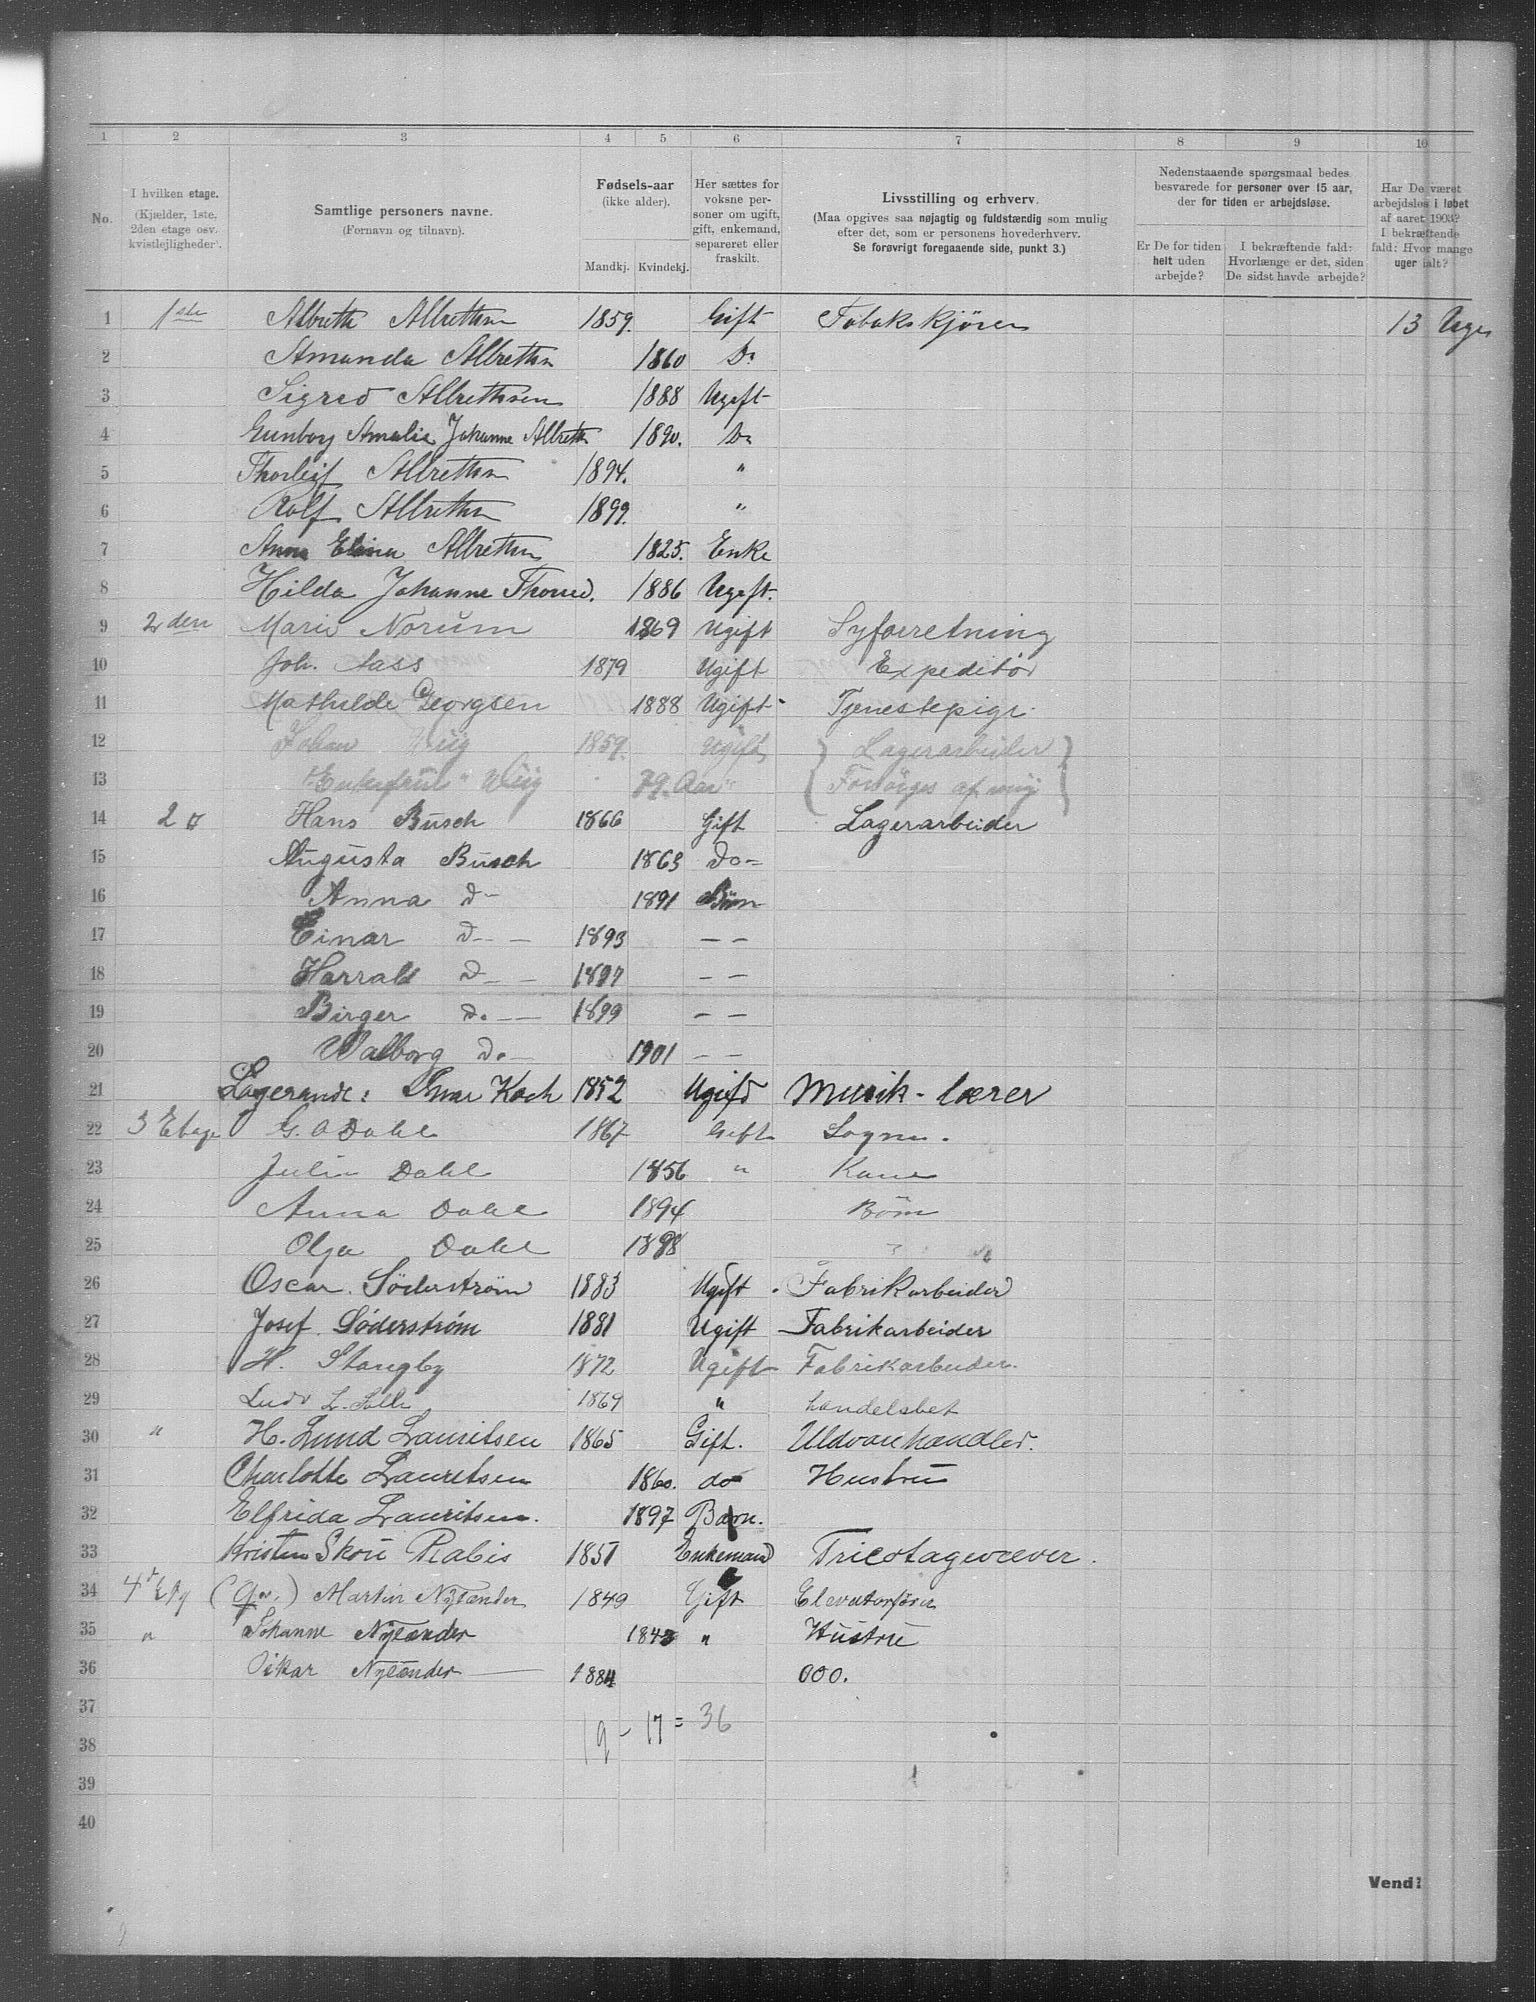 1 2 3 4 5 6 7 8 9 10
No.
I hvilken etage.
(Kjælder, 1ste,
2den etage osv.
kvistlejligheder).
Samtlige personers navne.
(Fornavn og tilnavn).
Fødsels-aar
(ikke alder).
Mandkj. Kvindekj.
Her sættes for
voksne per-
soner om ugift,
gift, enkemand,
separeret eller
fraskilt.
Livsstilling og erhverv.
(Maa opgives saa nøjagtig og fuldstændig som mulig
efter det, som er personens hovederhverv.
Se forøvrigt foregaaende side, punkt 3.)
Nedenstaaende spørgsmaal bedes
besvarede for personer over 15 aar,
der for tiden er arbejdsløse.
Er De for tiden
helt uden
arbejde?
I bekræftende fald:
Hvorlænge er det, siden
De sidst havde arbejde?
Har De været
arbejdsløs i løbet
af aaret 1903?
I bekræftende
fald: Hvor mange
uger ialt?
1 1ste Albreth Albrethsn 1859. Gift Tobakskjører 13 Uger
2 Amanda Albrethsn 1860 Do
3 Sigred Albrethsen 1888 Ugift
4 Gunborg Amalie Johanne Albreth 1890. Do
5 Thorleif Albrethsn 1894. "
6 Rolf Albrethsn 1899. "
7 Anna Elina Albrethsn 1825. Enke
8 Hilda Johanne 1886 Ugift.
9 2den Marie Norum 1869 Ugift Syforretning
10 Joh. Aass 1879 Ugift Expeditør
11 Mathilde Georgsen 1888 Ugift Tjenestepige
12 Johan Wiig 1859. Ugift Lagerarbeider
13 "Enkefrue" Wiig 79. Aar " Forsørges af mig
14 2 Hans Busch 1866 Gift Lagerarbeider
15 Augusta Busch 1863 Do-
16 Anna D- 1891 Børn
17 Einar D- - 1893 - -
18 Harrald D- - 1897 - -
19 Birger Do - - 1899 - -
20 Walborg Do- 1901 - -
21 Logerande: Koch 1852 Ugift Musik-lærer
22 3 Etage G. A Dahl 1867 Gift
23 Julie Dahl 1856 " Kone
24 Anna Dahl 1894 Børn
25 Olga Dahl 1898
26 Oscar. Söderström 1883 Ugift. Fabrikarbeider
27 Josef. Söderström 1881 Ugift Fabrikarbeider
28 H. Stangby 1872 Ugift Fabrikarbeider.
29 Ludv L. 1869 " handelsbet
30 " H. Lund Lauritsen 1865 Gift. Uldvarehandler.
31 Charlotte Lauritsen 1860. do Hustru
32 Elfrida Lauritsen. 1897 Barn.
33 Kristen Skou Rabis 1851 Enkemand Tricotagevæver.
34 4d Etg Martin Nylander 1849 Gift Elevatorfører
35 " Johanne Nylander 1843 " Hustru
36 Oskar Nylander 1884 000.
37
38
39
40
19 - 17 = 36
Vend!